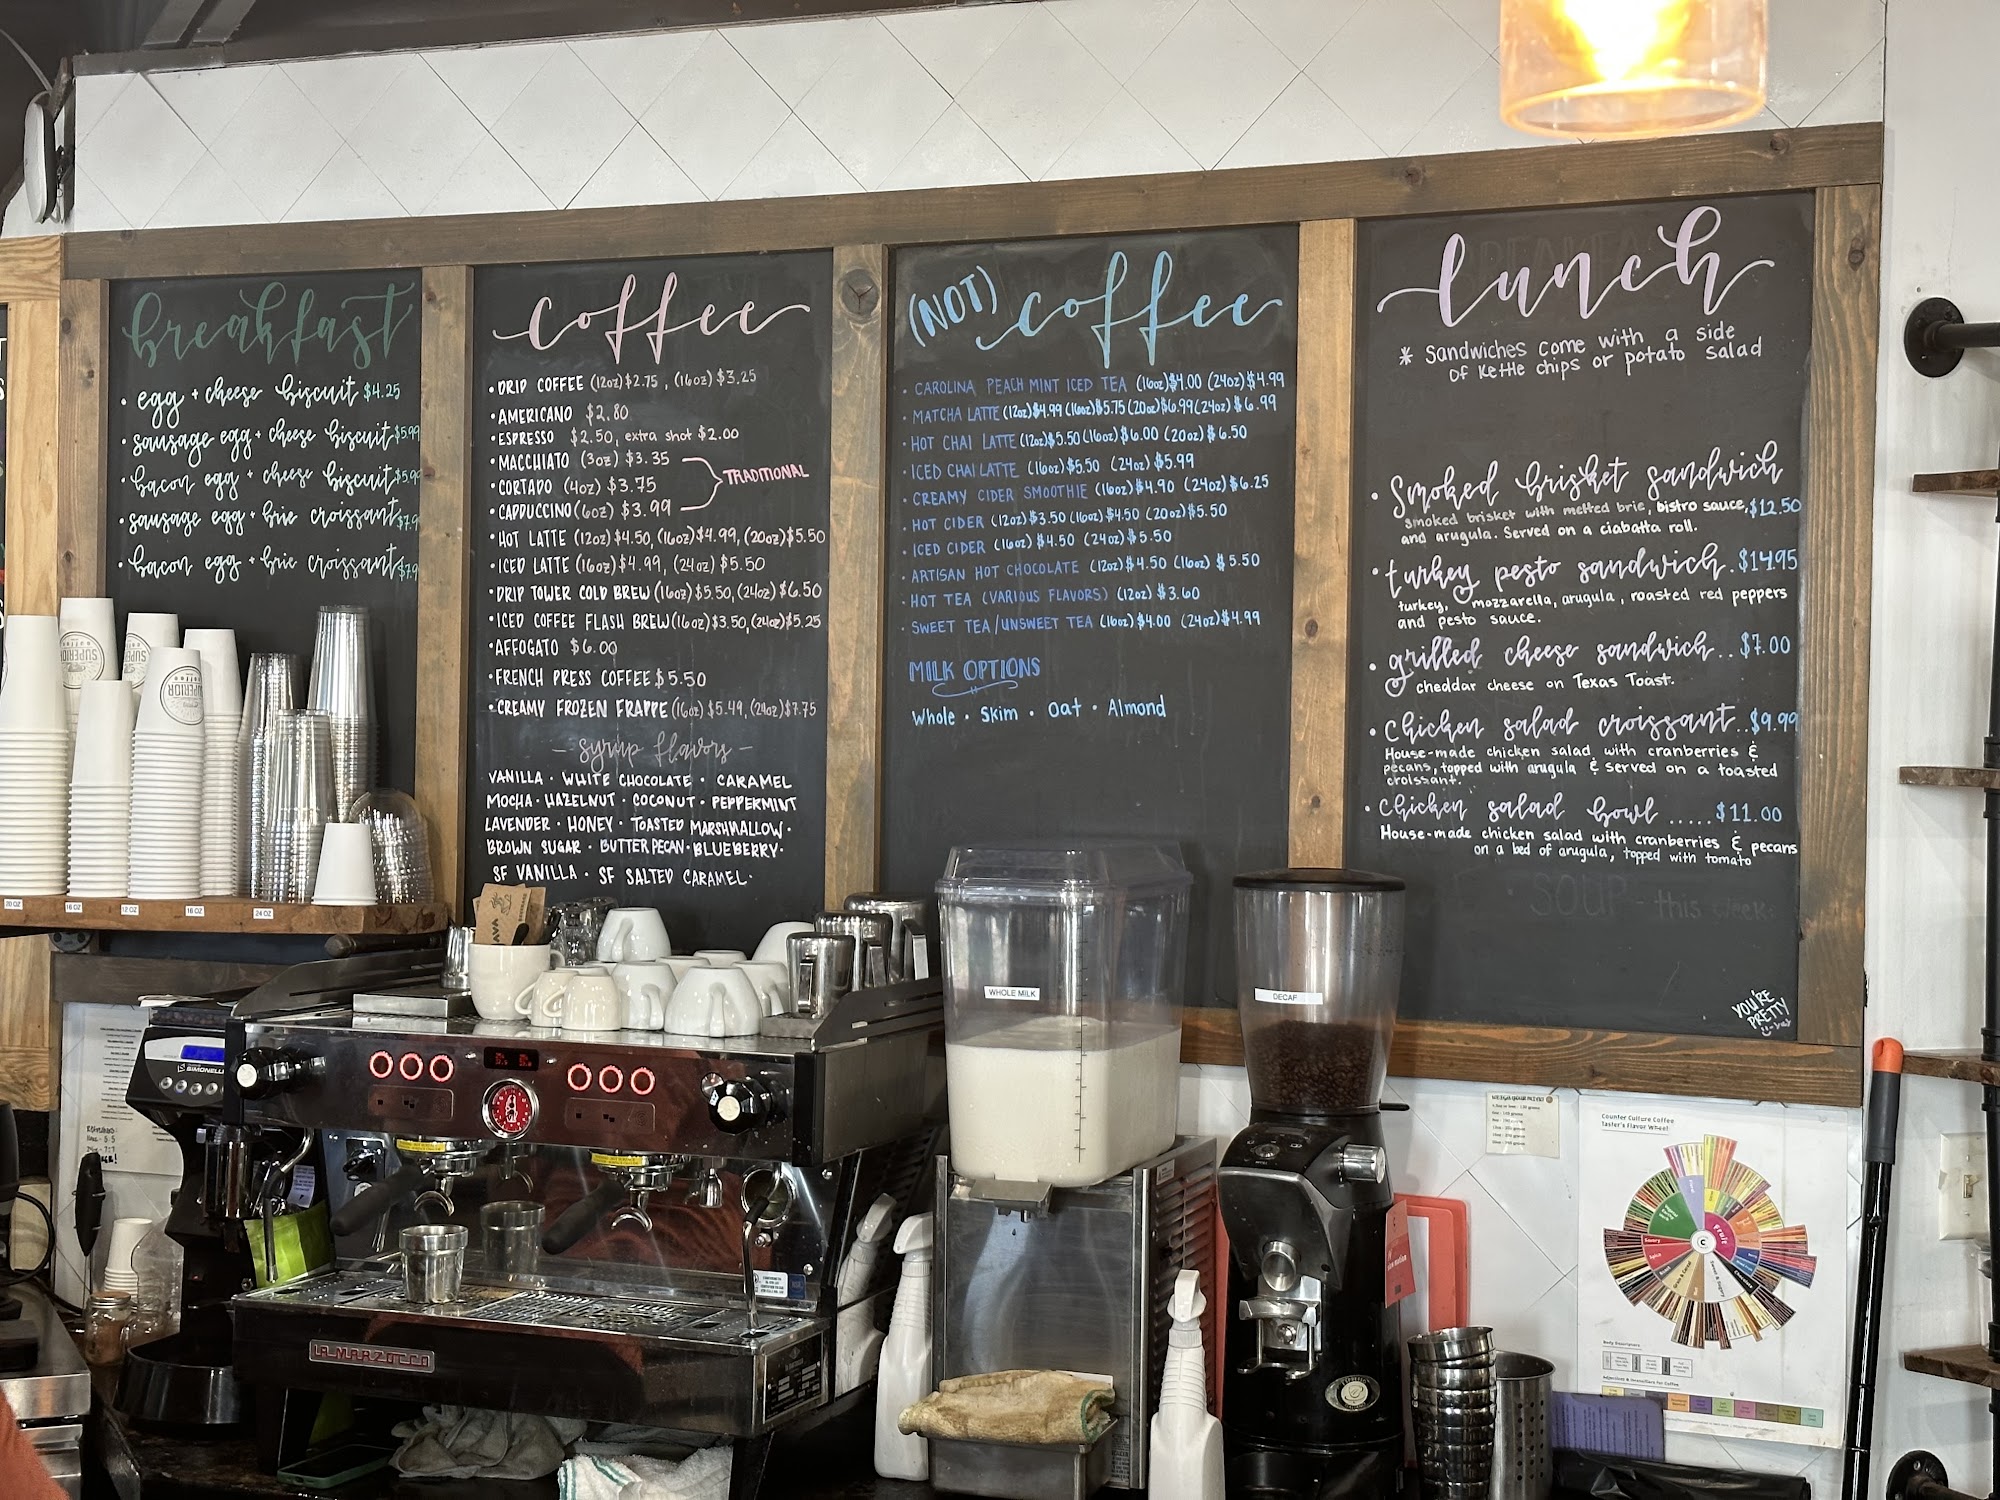 breakfast
• egg + cheese biscuit $4.25
• sausage egg + cheese biscuit $5.99
• bacon egg + cheese biscuit $5.99
• sausage egg + brie croissant $7.9
• bacon egg + brie croissant $7.9
coffee
• DRIP COFFEE (12oz) $2.75 , (16oz) $3.25
• AMERICANO $2.80
• ESPRESSO $2.50, extra shot $2.00
• MACCHIATO (3oz) $3.35
• CORTADO (4oz) $3.75
• CAPPUCCINO (6oz) $3.99
TRADITIONAL
• HOT LATTE (12oz) $4.50, (16oz) $4.99, (20oz) $5.50
• ICED LATTE (16oz) $4.99, (24oz) $5.50
• DRIP TOWER COLD BREW (16oz) $5.50, (24oz) $6.50
• ICED COFFEE FLASH BREW (16oz) $3.50, (24oz) $5.25
• AFFOGATO $6.00
• FRENCH PRESS COFFEE $5.50
• CREAMY FROZEN FRAPPE (16oz) $5.49, (24oz) $7.75
- syrup flavors -
VANILLA · WHITE CHOCOLATE · CARAMEL
MOCHA · HAZELNUT · COCONUT · PEPPERMINT
LAVENDER · HONEY · TOASTED MARSHMALLOW ·
BROWN SUGAR · BUTTER PECAN · BLUEBERRY ·
SF VANILLA · SF SALTED CARAMEL ·
(NOT) coffee
• CAROLINA PEACH MINT ICED TEA (16oz) $4.00 (24oz) $4.99
• MATCHA LATTE (12oz) $4.99 (16oz) $5.75 (20oz) $6.99 (24oz) $6.99
• HOT CHAI LATTE (12oz) $5.50 (16oz) $6.00 (20oz) $6.50
• ICED CHAI LATTE (16oz) $5.50 (24oz) $5.99
• CREAMY CIDER SMOOTHIE (16oz) $4.90 (24oz) $6.25
• HOT CIDER (12oz) $3.50 (16oz) $4.50 (20oz) $5.50
• ICED CIDER (16oz) $4.50 (24oz) $5.50
• ARTISAN HOT CHOCOLATE (12oz) $4.50 (16oz) $5.50
• HOT TEA (VARIOUS FLAVORS) (12oz) $3.60
• SWEET TEA/UNSWEET TEA (16oz) $4.00 (24oz) $4.99
MILK OPTIONS
Whole · Skim · Oat · Almond
lunch
* Sandwiches come with a side
of Kettle chips or potato salad
• Smoked brisket sandwich
smoked brisket with melted brie, bistro sauce, $12.50
and arugula. Served on a ciabatta roll.
• turkey pesto sandwich . $14.95
turkey, mozzarella, arugula, roasted red peppers
and pesto sauce.
• grilled cheese sandwich .. $7.00
cheddar cheese on Texas Toast.
• Chicken salad croissant .. $9.99
House-made chicken salad with cranberries &
pecans, topped with arugula & served on a toasted
croissant.
• Chicken salad bowl ..... $11.00
House-made chicken salad with cranberries & pecans
on a bed of arugula, topped with tomato
SOUP - this week:
YOU'RE
PRETTY
SUPERIOR
coffee
SUPERIOR
SUPERIOR
20 OZ
16 OZ
12 OZ
16 OZ
24 OZ
WHOLE MILK
DECAF
SIMONELLI
LA MARZOCCO
Counter Culture Coffee
Taster's Flavor Wheel
Fruit